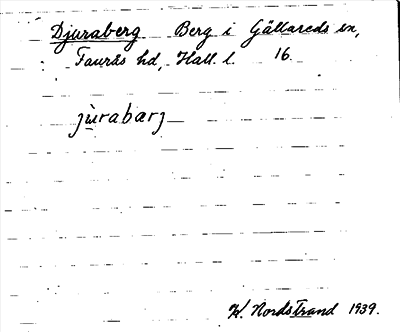 Djuraberg Berg i Gällareds sn,
Faurås hd, Hall. l. 16.
jùrabærj
H. Nordstrand 1939.